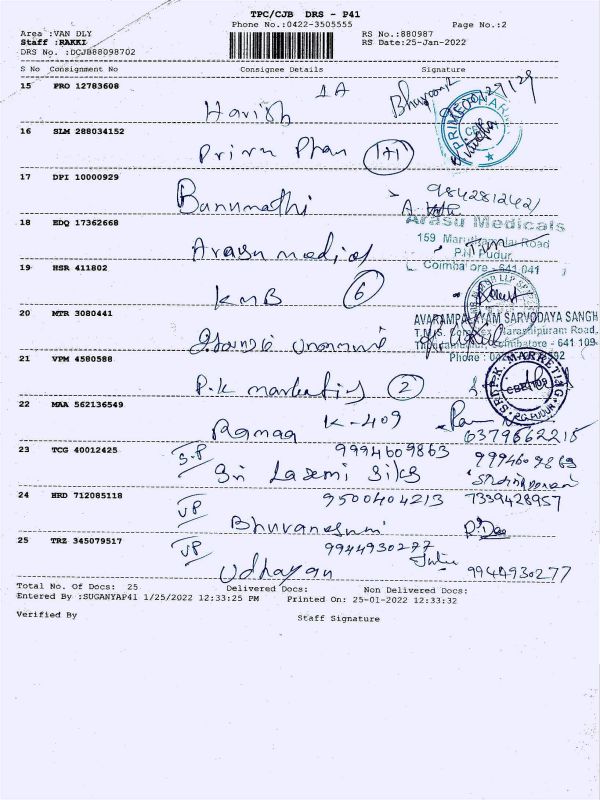 TPC/CJB DRS - P41
Phone No.:0422-3505555
Page No.:2
Area :VAN DLY
Staff :RAKKI
DRS No. :DCJB88098702
RS No.:880987
RS Date:25-Jan-2022
S No Consignment No Consignee Details Signature
15 PRO 12783608
1A
Harish
16 SLM 288034152
(1+1)
17 DPI 10000929
Banumathi
9842812421
18 EDQ 17362668
Arasu Medicals
159 Maruthamalai Road
P.N Pudur
Coimbatore - 641 041
19 HSR 411802
KMB 6
20 MTR 3080441
AVARAMPALAYAM SARVODAYA SANGH
Coimbatore - 641 109
Phone :
21 VPM 4580588
P.K marketing 2
SRI P.K MARKETING
22 MAA 562136549
K-409
Ramaa
6379662215
23 TCG 40012425
S.P
9994609863
9994609863
Sri Laxmi Silks
24 HRD 712085118
VP
9500404213 7339428957
Bhuvaneswari
25 TRZ 345079517
VP
9944930277
Udhayan
9944930277
Total No. Of Docs: 25 Delivered Docs: Non Delivered Docs:
Entered By :SUGANYAP41 1/25/2022 12:33:25 PM Printed On: 25-01-2022 12:33:32
Verified By
Staff Signature